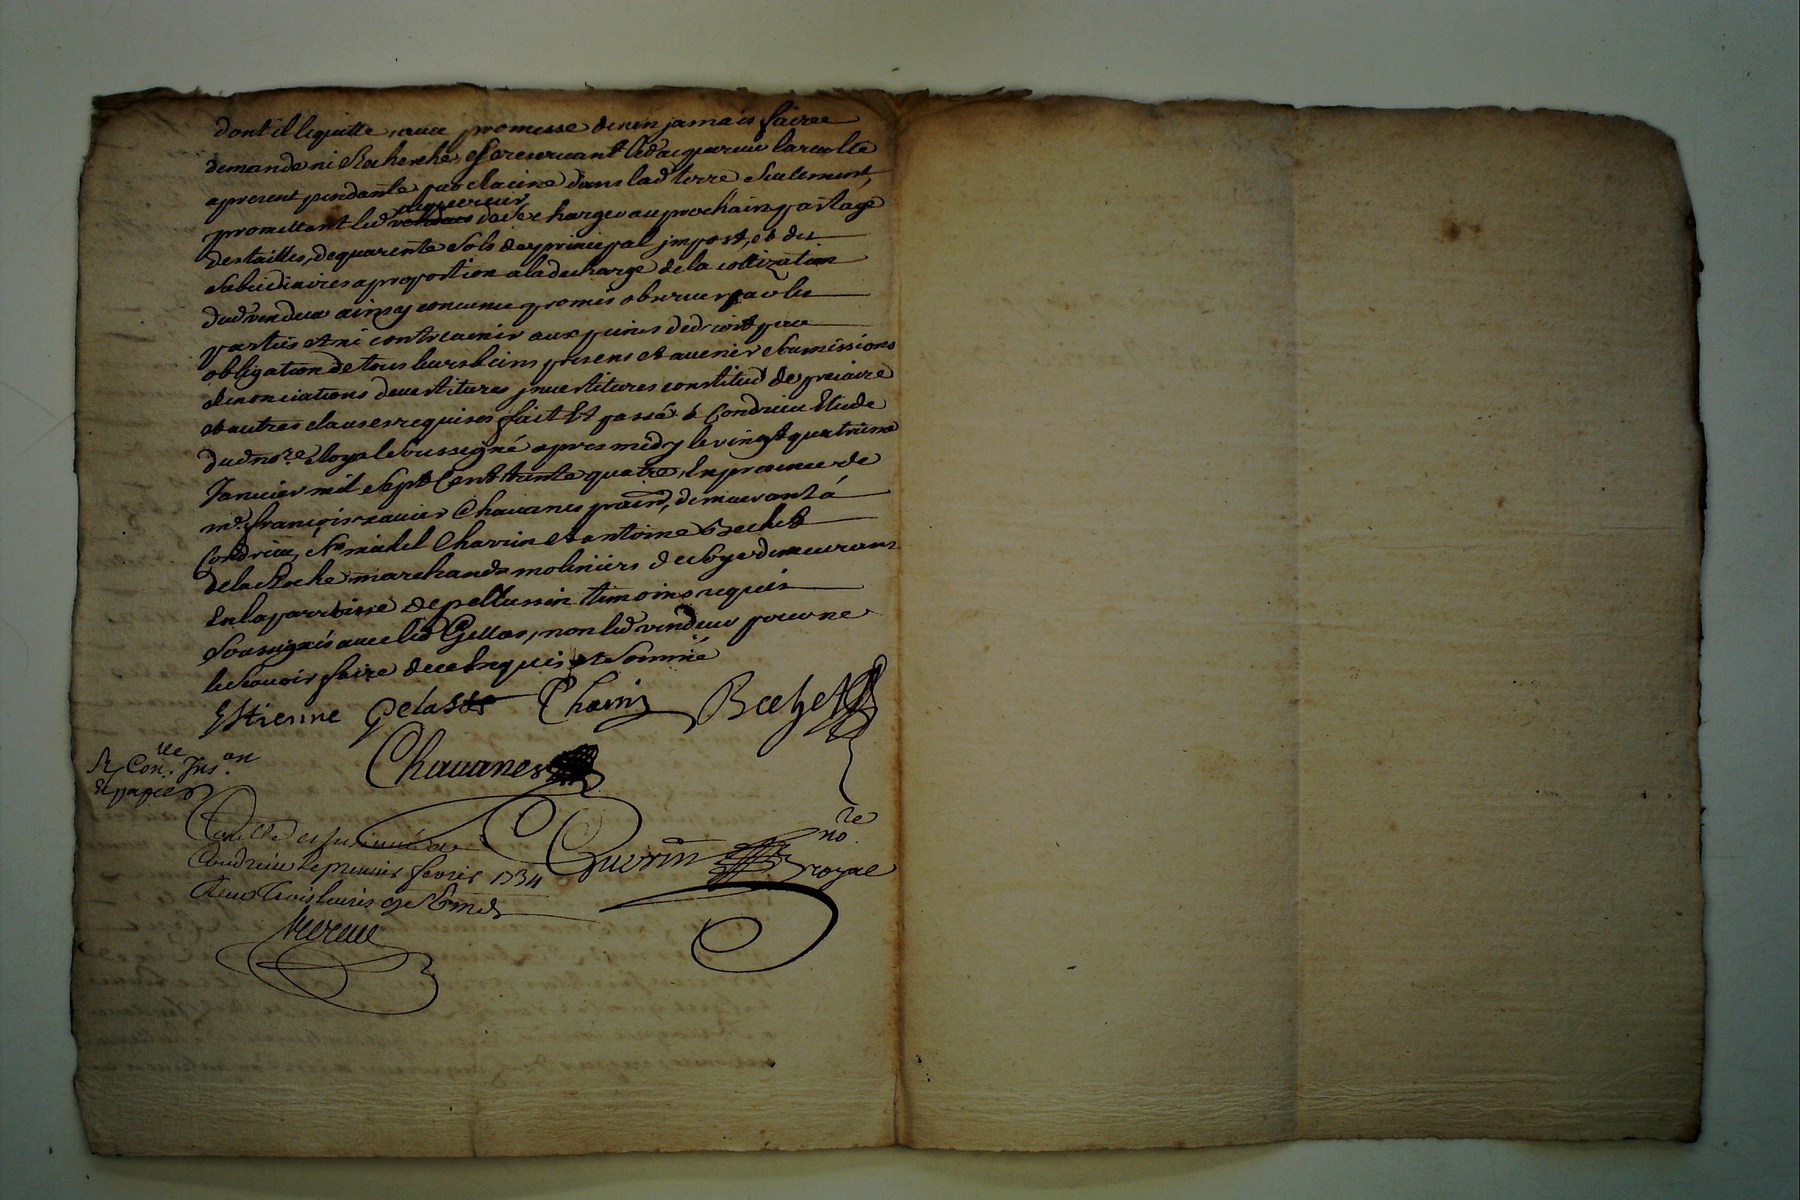 dont il le quitte, avec promesse de n'en jamais faire
demande ni Recherche, se reservant led acquereur la recolte
a present pendante par racine dans lad terre Seulement,
acquereur
promettant led vendeur de se charger au prochain partage
des tailles, de quarente sols de principal impost, et des
subsidiaires a proportion a la decharge de la cottization
dud vendeur ainsy convenu promis observer par les
parties et ni contrevenir aux peines de droit par
obligation de tous leurs biens presens et avenir soumissions
Renonciations devestitures investitures constitud de precaire
et autres clauses requises fait Et passé a Condrieu Etude
dud nore Royal soussigné apres midy le vingt quatrieme
Janvier mil Sept Cent trente quatre, En presence de
mr françois xavier Chavanes pratn, demeurant á
Condrieu, sr michel Chavrin et antoine Bechet
de la Roche marchands moliniers de soye demeurans
En la parroisse de pellussin temoins requis
Soussignés avec led Gellas, non led vendeur pour ne
le scavoir faire de ce Enquis et Sommé
Estienne Gelas Bechet
Chavanes
Con.lle Ins.on
& papier
Condrieu le premier fevrier 1734
Guerin no.re royal